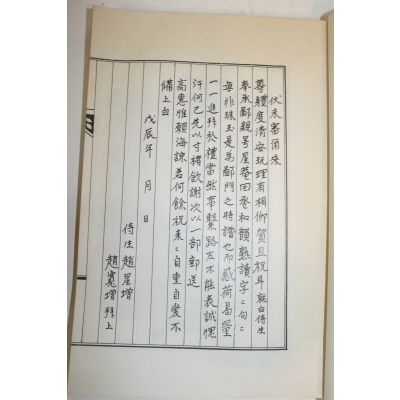 伏未審甫來
尊體度淸安玩理有相仰賀且祝耳就白侍生
奉承鄙親号屋菴回丞和韻熟讀字〻句〻
每非珠玉是為鄙門之特譜也而感荷曷量
一一進拜於禮當然事繫路左不能表誠愧
汗何已先以寸楮飮謝次以一部郵送
高惠雅賴海諒若何餘祝來〻自重自愛不
備上白
戊辰年 月 日
侍生趙星增
趙寬增拜上